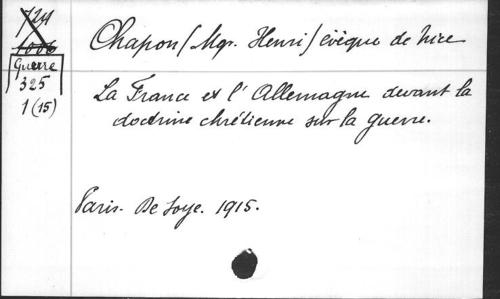 724
1086
Guerre
325
1 (15)
Chapon (Mgr. Henri) évêque de Nice
La France et l'Allemagne devant la
doctrine chrétienne sur la guerre.
Paris. De Soye. 1915.